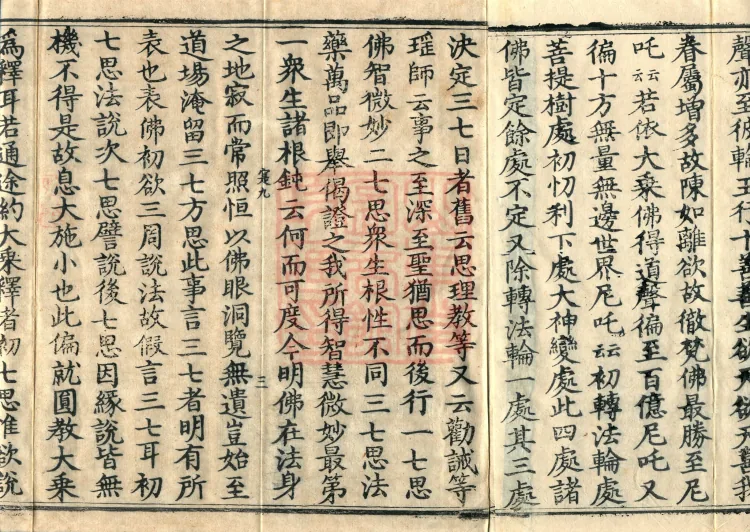 聲亦至
眷屬增多故陳如離欲故徹梵佛最勝至尼
吒云云若依大乘佛得道聲徧至百億尼吒又
徧十方無量無邊世界尼吒云云初轉法輪處
菩提樹處初忉利下處大神變處此四處諸
佛皆定餘處不定又除轉法輪一處其三處
決定三七日者舊云思理教等又云勸誡等
瑶師云事之至深至聖猶思而後行一七思
佛智微妙二七思衆生根性不同三七思法
藥萬品即舉偈證之我所得智慧微妙最第
一衆生諸根鈍云何而可度今明佛在法身
寔九
三
之地寂而常照恒以佛眼洞覽無遺豈始至
道場淹留三七方思此事言三七者明有所
表也表佛初欲三周說法故假言三七耳初
七思法說次七思譬說後七思因緣說皆無
機不得是故息大施小也此偏就圓教大乘
爲釋耳若通途約大乘釋者初七思惟欲說